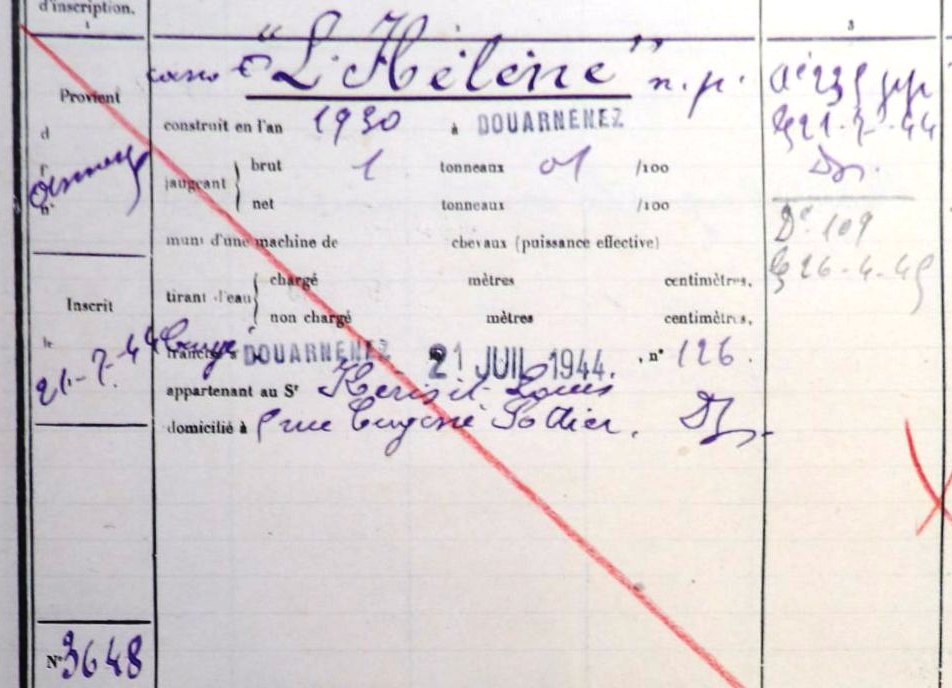 d'inscription.
1
3
Provient
d
n°
Inscrit
le 21-7-44
N° 3648
canot "L'Hélène" n.p.
construit en l'an 1930 à DOUARNENEZ
jaugeant
brut 1 tonneaux 01 /100
net tonneaux /100
muni d'une machine de chevaux (puissance effective)
tirant d'eau
chargé mètres centimètres,
non chargé mètres centimètres,
francisé à DOUARNENEZ 21 JUIL 1944. , n° 126.
appartenant au Sr Louis
domicilié à rue Eugène Pottier. Dz.
21-7-44
Dz.
D° 109
26-4-45